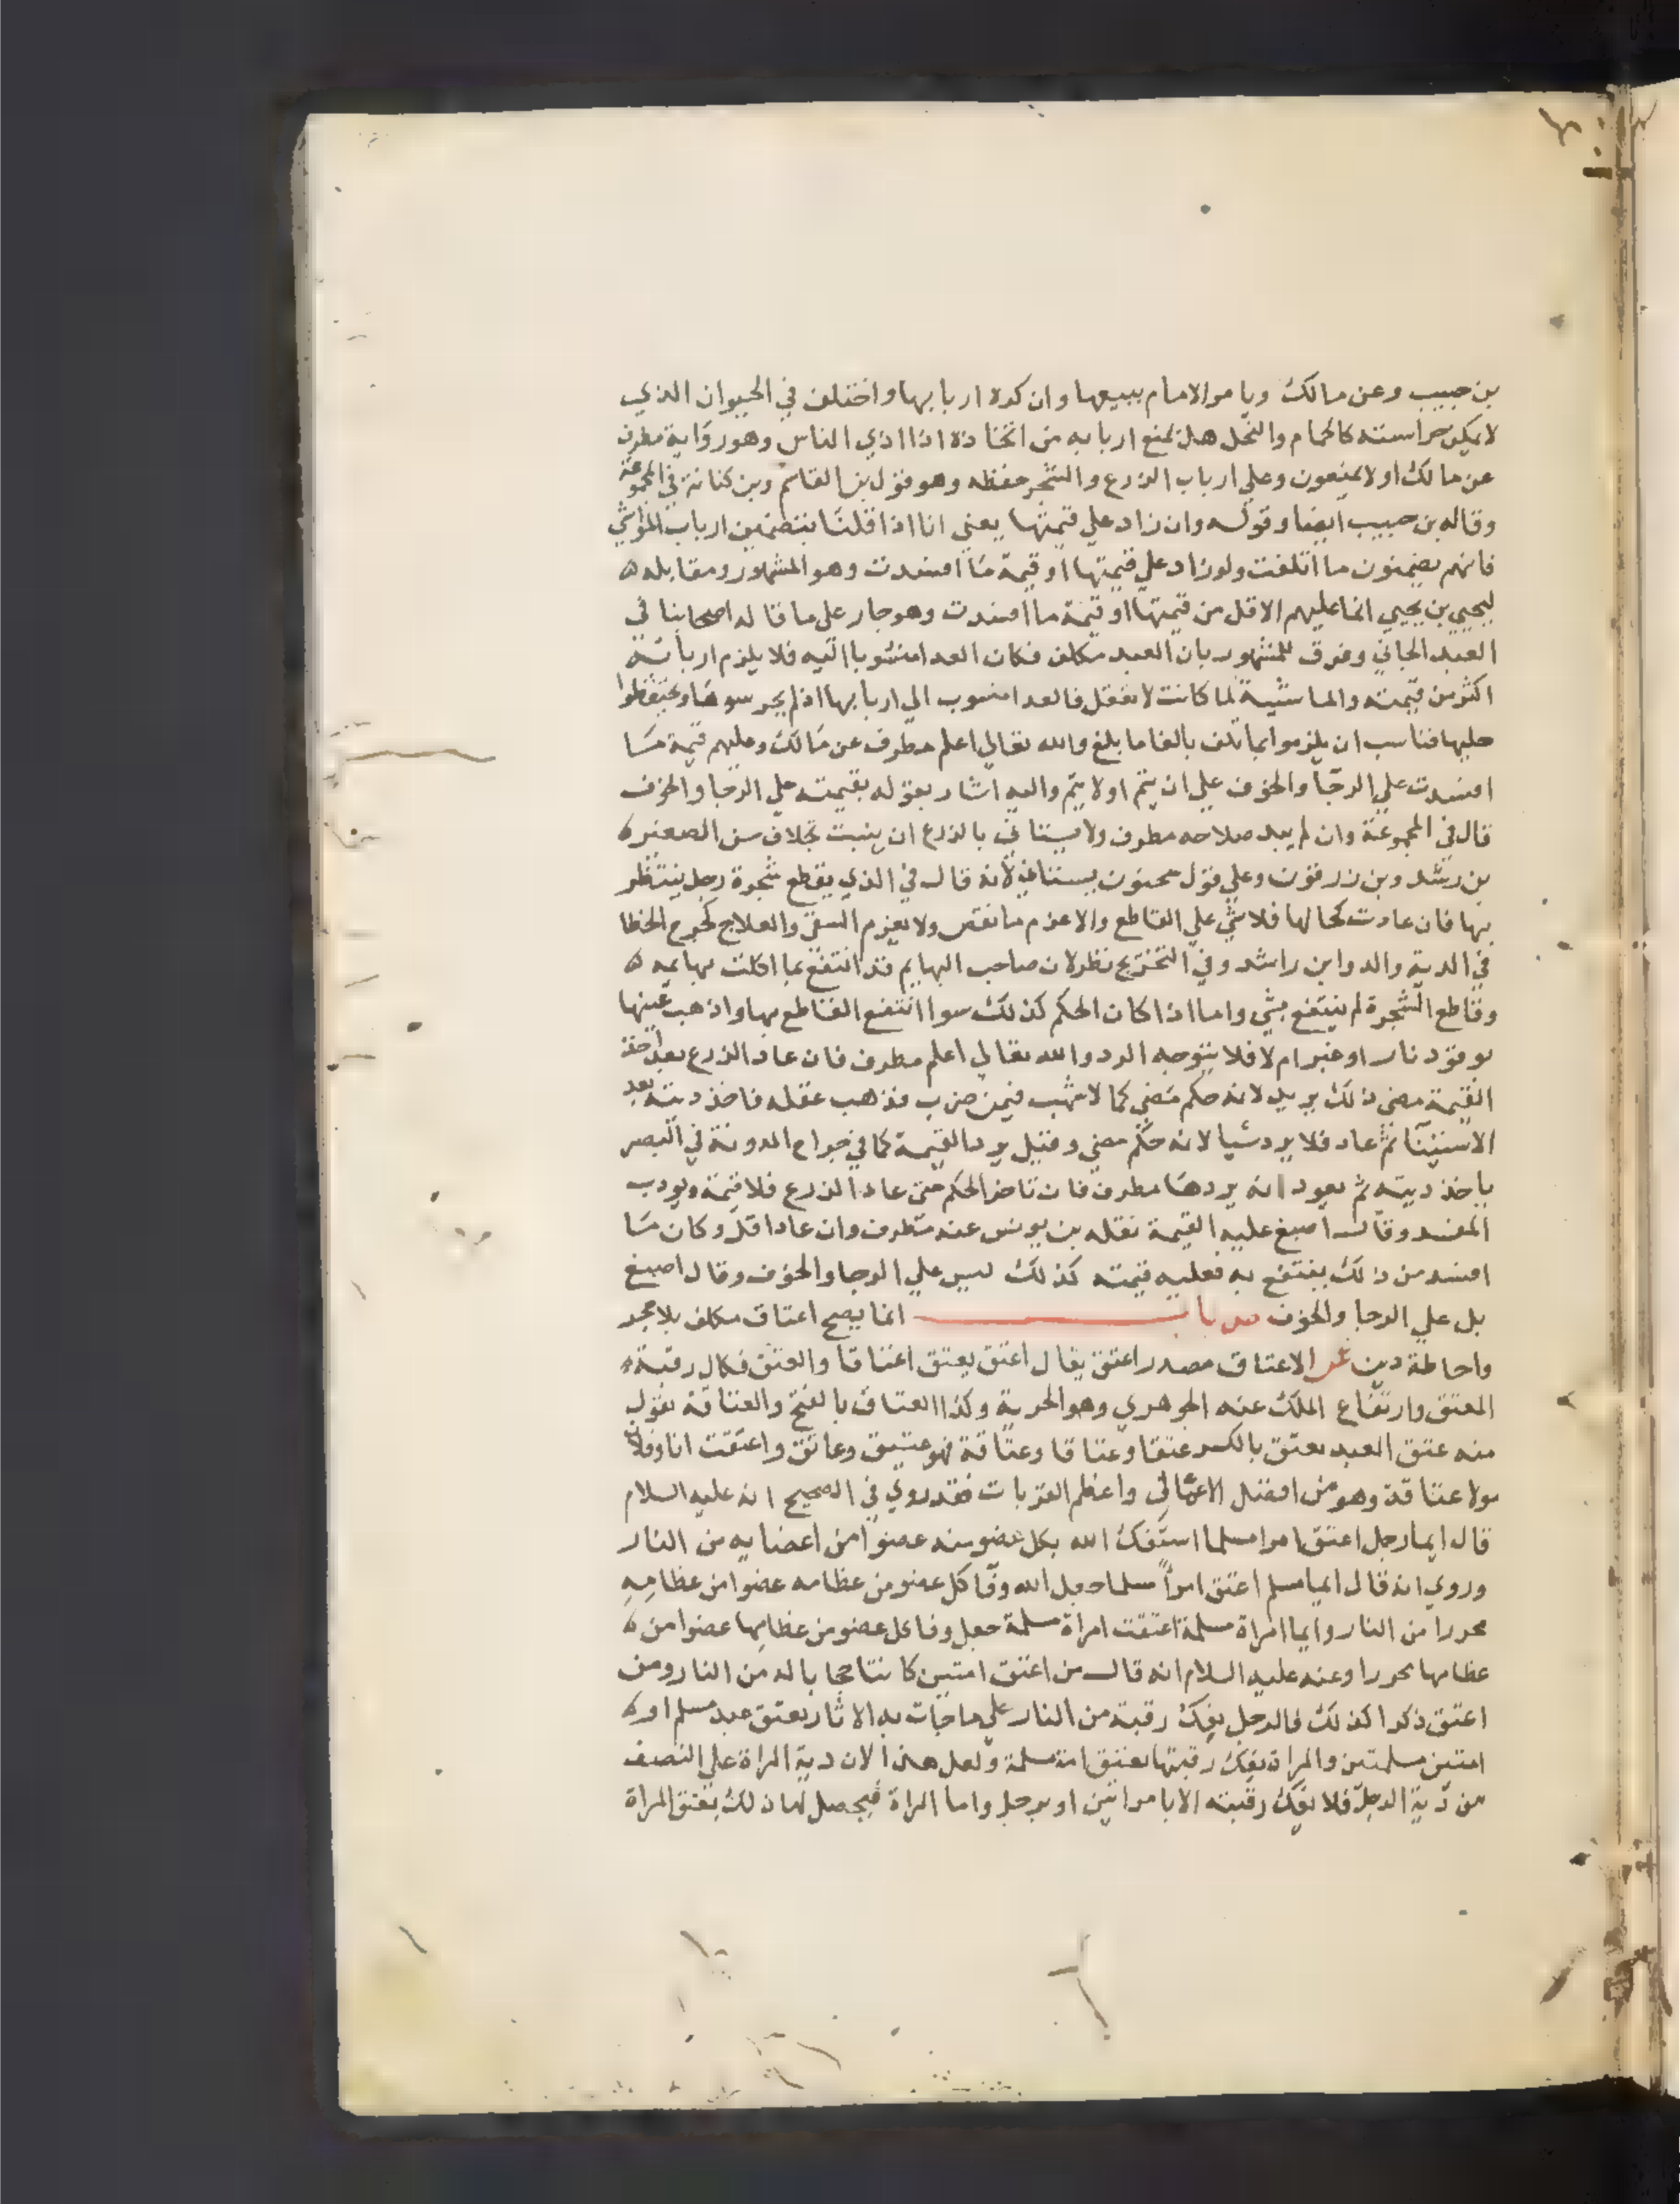 بن حبيب وعن مالك ويامر الامام ببيعها وان كره اربابها واختلف في الحيوان الذي
لا يمكن حراسته كالحمام والنحل هل يمنع اربابه من اتخاذه اذا اذي الناس وهو رواية مطرف
عن مالك او لا يمنعون وعلي ارباب الزرع والشجر حفظه وهو قول بن القاسم وبن كنانة في المجموعة
وقاله بن حبيب ايضا وقوله وان زاد علي قيمتها يعني انا اذا قلنا بتضمين ارباب المواشي
فانهم يضمنون ما اتلفت ولو زاد علي قيمتها او قيمة ما افسدت وهو المشهور ومقابله
ليحيي بن يحيي انما عليهم الاقل من قيمتها او قيمة ما افسدت وهو جار على ما قاله اصحابنا في
العبد الجاني وفرق للمشهور بان العبد مكلف فكان العدا منسوبا اليه فلا يلزم اربابه
اكثر من قيمته والماشية لما كانت لا تعقل فالعدا منسوب الي اربابها اذ لم يحرسوها ويحتفظوا
عليها فناسب ان يلزموا بما تلف بالغا ما بلغ والله تعالي اعلم مطرف عن مالك وعليهم قيمة ما
افسدت علي الرجا والخوف علي ان يتم او لا يتم واليه اشار بقوله بقيمته علي الرجا والخوف
قال في المجموعة وان لم يبد صلاحه مطرف ولا يستاني بالزرع ان ينبت بخلاف سن الصغير
بن رشد وبن زرقون وعلي قول سحنون يستاني لانه قال في الذي يقطع شجرة رجل ينتظر
بها فان عادت لحالها فلا شي علي القاطع والا غرم ما نقص ولا يغرم السقي والعلاج كجرح الخطا
في الدية والدوا بن راشد وفي التخريج نظر لان صاحب البهايم قد انتفع بما اكلت بهايمه
وقاطع الشجرة لم ينتفع بشي واما اذا كان الحكم كذلك سوا انتفع القاطع بها واذهب عينها
بوقود نار او غير ام لا فلا يتوجه الرد والله تعالي اعلم مطرف فان عاد الزرع بعد اخذ
القيمة مضي ذلك يريد لانه حكم مضي كما لاشهب فيمن ضرب فذهب عقله فاخذ ديته بعد
الاستينا ثم عاد فلا يرد شيا لانه حكم مضي وقيل يرد القيمة كما في جراح المدونة في البصر
ياخذ ديته ثم يعود انه يردها مطرف فان تاخر الحكم حتي عاد الزرع فلا قيمة ويودب
المفسد وقال اصبغ عليه القيمة نقله بن يونس عنه مطرف وان عاد اقل وكان ما
افسد من ذلك ينتفع به فعليه قيمته كذلك ليس علي الرجا والخوف وقال اصبغ
بل علي الرجا والخوف ص باب انما يصح اعتاق مكلف بلا حجر
واحاطة دين ش الاعتاق مصدر اعتق يقال اعتق يعتق اعتاقا والعتق فكاك رقبة
المعتق وارتفاع الملك عنه الجوهري وهو الحرية وكذا العتاق بالفتح والعتاقة تقول
منه عتق العبد يعتق بالكسر عتقا وعتاقا وعتاقة فهو عتيق وعاتق واعتقت انا وفلان
مولا عتاقة وهو من افضل الاعمال واعظم القربات فقد روي في الصحيح انه عليه السلام
قال ايما رجل اعتق امرا مسلما استنقذ الله بكل عضو منه عضوا من اعضايه من النار
وروي انه قال ايما مسلم اعتق امرأ مسلما جعل الله وقا كل عضو من عظامه عضوا من عظامه
محررا من النار وايما امراة مسلمة اعتقت امراة مسلمة جعل وقا كل عضو من عظامها عضوا من
عظامها محررا وعنه عليه السلام انه قال من اعتق امتين كانتا حجابا له من النار ومن
اعتق ذكرا كذلك فالرجل يفك رقبة من النار علي ما جات به الاثار بعتق عبد مسلم او
امتين مسلمتين والمراة تفك رقبتها بعتق امة مسلمة ولعل هذا لان دية المراة علي النصف
من دية الرجل فلا تفك رقبته الا بامراتين او برجل واما المراة فيحصل لها ذلك بعتق المراة